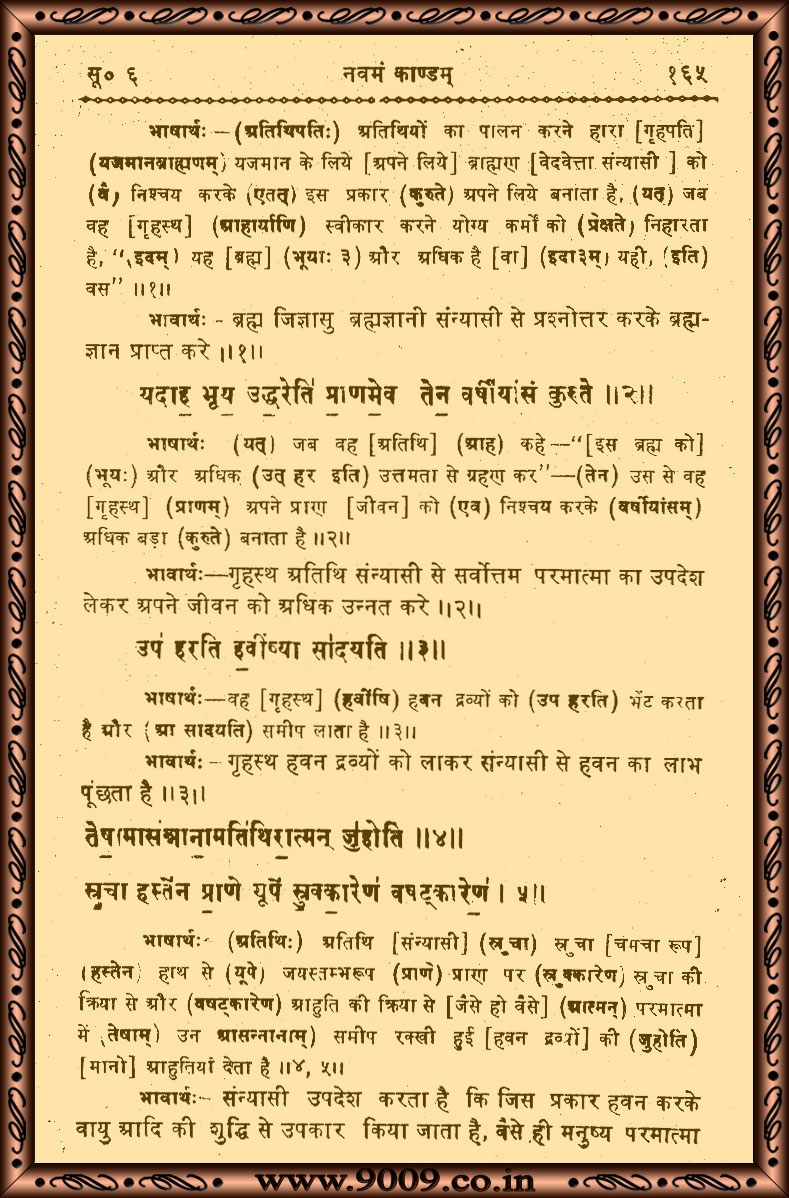 सू० ६ नवमं काण्डम् १६५
भाषार्थः—(अतिथिपतिः) अतिथियों का पालन करने हारा [गृहपति]
(यजमानब्राह्मणम्) यजमान के लिये [अपने लिये] ब्राह्मण [वेदवेत्ता संन्यासी ] को
(वै) निश्चय करके (एतत्) इस प्रकार (कुरुते) अपने लिये बनाता है, (यत्) जब
वह [गृहस्थ] (आहार्याणि) स्वीकार करने योग्य कर्मों को (प्रेक्षते) निहारता
है, “(इदम्) यह [ब्रह्म] (भूयाः ३) और अधिक है [वा] (इदा३म्) यही, (इति)
बस” ॥१॥
भावार्थः - ब्रह्म जिज्ञासु ब्रह्मज्ञानी संन्यासी से प्रश्नोत्तर करके ब्रह्म-
ज्ञान प्राप्त करे ॥१॥
यदाह॒ भूय॒ उद्ध॒रेति॑ प्रा॒णमे॒व तेन॒ वर्षी॑यांसं कुरुते ॥२॥
भाषार्थः (यत्) जब वह [अतिथि] (आह) कहे—“[इस ब्रह्म को]
(भूयः) और अधिक (उत् हर इति) उत्तमता से ग्रहण कर”—(तेन) उस से वह
[गृहस्थ] (प्राणम्) अपने प्राण [जीवन] को (एव) निश्चय करके (वर्षीयांसम्)
अधिक बड़ा (कुरुते) बनाता है ॥२॥
भावार्थः—गृहस्थ अतिथि संन्यासी से सर्वोत्तम परमात्मा का उपदेश
लेकर अपने जीवन को अधिक उन्नत करे ॥२॥
उप॑ हरति ह॒वींष्या सा॑दयति ॥३॥
भाषार्थः—वह [गृहस्थ] (हवींषि) हवन द्रव्यों को (उप हरति) भेंट करता
है और (आ सादयति) समीप लाता है ॥३॥
भावार्थः - गृहस्थ हवन द्रव्यों को लाकर संन्यासी से हवन का लाभ
पूंछता है ॥३॥
तेषा॒मास॑न्नाना॒मति॑थिरा॒त्मन् जु॑होति ॥४॥
स्रु॒चा हस्ते॑न प्रा॒णे यूपे॑ स्रुक्का॒रेण॑ वषट्का॒रेण॑ । ५॥
भाषार्थः- (अतिथिः) अतिथि [संन्यासी] (स्रुचा) स्रुचा [चमचा रूप]
(हस्तेन) हाथ से (यूपे) जयस्तम्भरूप (प्राणे) प्राण पर (स्रुक्कारेण) स्रुचा की
क्रिया से और (वषट्कारेण) आहुति की क्रिया से [जैसे हो वैसे] (आत्मन्) परमात्मा
में (तेषाम्) उन आसन्नानाम्) समीप रक्खी हुई [हवन द्रव्यों] की (जुहोति)
[मानो] आहुतियां देता है ॥४, ५॥
भावार्थः- संन्यासी उपदेश करता है कि जिस प्रकार हवन करके
वायु आदि की शुद्धि से उपकार किया जाता है, वैसे ही मनुष्य परमात्मा
www.9009.co.in